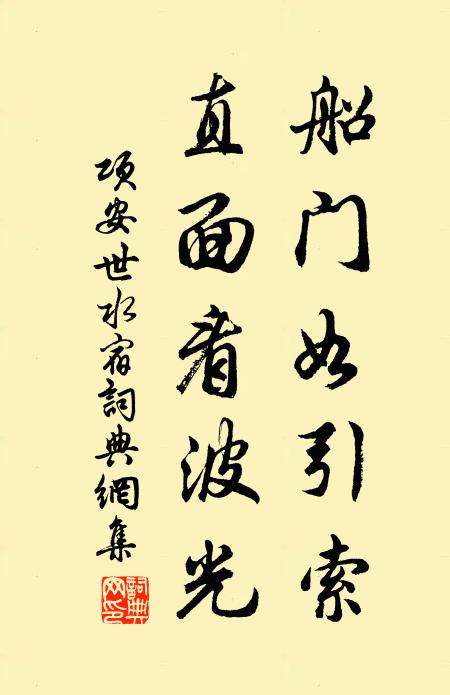 船门如引索
直面看波光
项安世水宿詞典網集
詞典网印